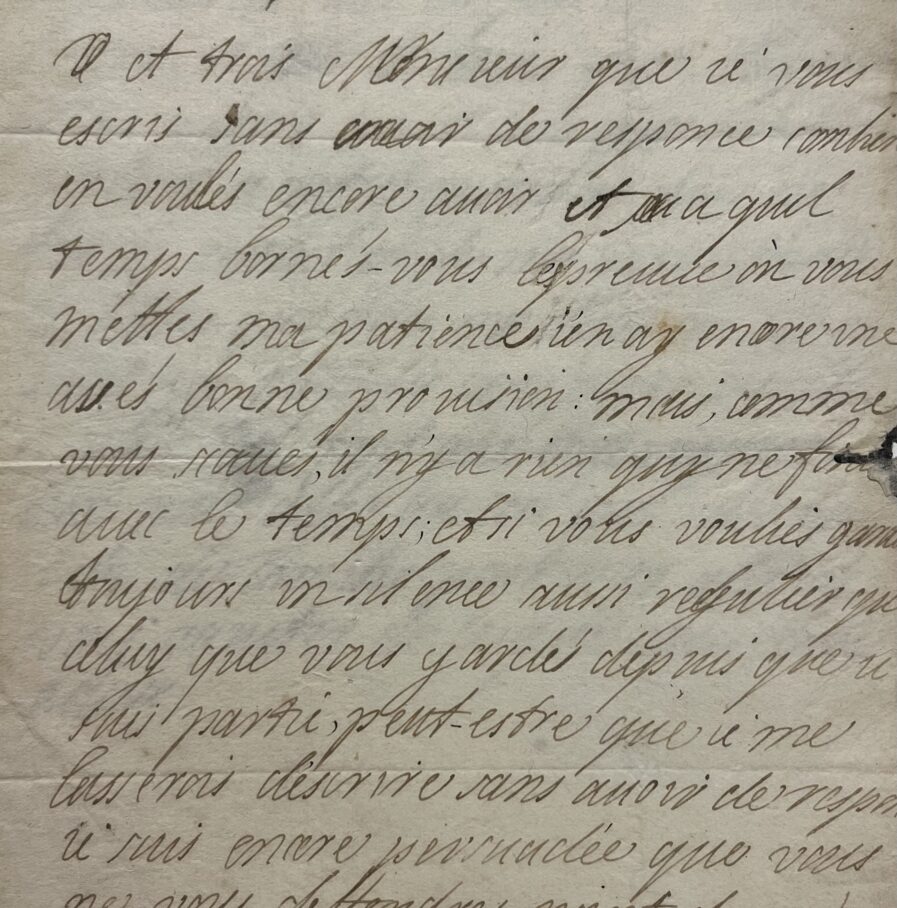 et trois Monsieur que ie vous
escris sans auoir de responce combien
en voulés encore auoir et a quel
temps bornés-vous l'epreuue ou vous
mettes ma patience i'en ay encore vne
assés bonne prouision: mais, comme
vous scaués, il n'y a rien quy ne finisse
auec le temps; et si vous vouliés garder
toujours vn silence aussi regulier que
celuy que vous gardés depuis que ie
suis partie, peut-estre que ie me
lasserois d'escrire sans auoir de respon
ie suis encore persuadée que vous
ne vous